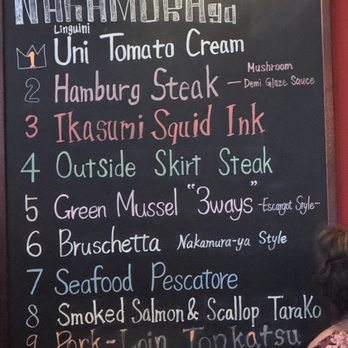 NAKAMURAya
Linguini
1 Uni Tomato Cream
2 Hamburg Steak - Mushroom Demi Glaze Sauce
3 Ikasumi Squid Ink
4 Outside Skirt Steak
5 Green Mussel "3ways" -Escargot Style-
6 Bruschetta Nakamura-ya Style
7 Seafood Pescatore
8 Smoked Salmon & Scallop TaraKo
9 Pork-Loin Tonkatsu